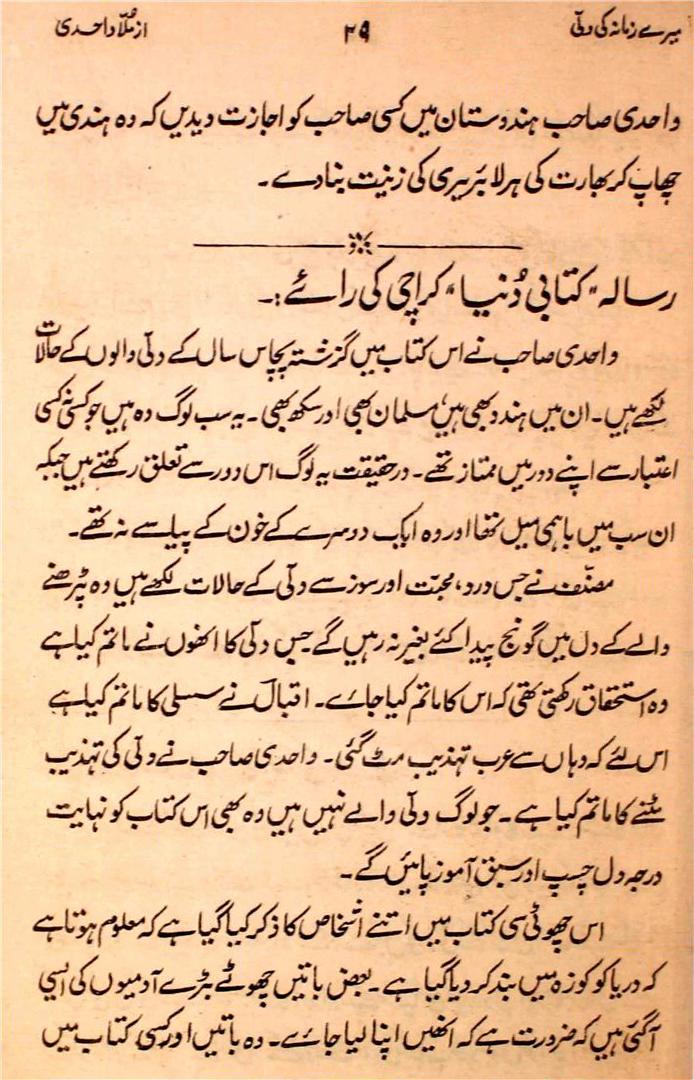 میرے زمانہ کی دلّی ۲۹ از مُلّا واحدی
واحدی صاحب ہندوستان میں کسی صاحب کو اجازت دیدیں کہ وہ ہندی میں
چھاپ کر بھارت کی ہر لائبریری کی زینت بنادے۔
رسالہ "کتابی دُنیا" کراچی کی رائے:۔
واحدی صاحب نے اس کتاب میں گزشتہ پچاس سال کے دلّی والوں کے حالات
لکھے ہیں۔ ان میں ہندو بھی ہیں، مسلمان بھی اور سکھ بھی۔ یہ سب لوگ وہ ہیں جو کسی نہ کسی
اعتبار سے اپنے دور میں ممتاز تھے۔ درحقیقت یہ لوگ اس دور سے تعلق رکھتے ہیں جبکہ
ان سب میں باہمی میل تھا اور وہ ایک دوسرے کے خون کے پیاسے نہ تھے۔
مصنّف نے جس درد، محبّت اور سوز سے دلّی کے حالات لکھے ہیں وہ پڑھنے
والے کے دل میں گونج پیدا کئے بغیر نہ رہیں گے جس دلّی کا انھوں نے ماتم کیا ہے
وہ استحقاق رکھتی تھی کہ اس کا ماتم کیا جائے۔ اقبال نے سسلی کا ماتم کیا ہے
اس لئے کہ وہاں سے عرب تہذیب مٹ گئی۔ واحدی صاحب نے دلّی کی تہذیب
مٹنے کا ماتم کیا ہے۔ جو لوگ دلّی والے نہیں ہیں وہ بھی اس کتاب کو نہایت
درجہ دل چسپ اور سبق آموز پائیں گے۔
اس چھوٹی سی کتاب میں اتنے اشخاص کا ذکر کیا گیا ہے کہ معلوم ہوتا ہے
کہ دریا کو کوزہ میں بند کر دیا گیا ہے۔ بعض باتیں چھوٹے بڑے آدمیوں کی ایسی
آگئی ہیں کہ ضرورت ہے کہ انھیں اپنا لیا جائے۔ وہ باتیں اور کسی کتاب میں